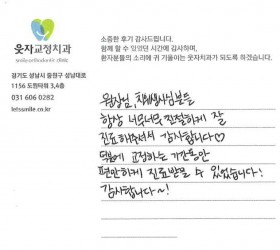 웃자교정치과
smile orthodontic clinic
경기도 성남시 중원구 성남대로
1156 도원타워 3,4층
031 606 0282
letssmile.co.kr
소중한 후기 감사드립니다.
함께 할 수 있었던 시간에 감사하며,
환자분들의 소리에 귀 기울이는 웃자치과가 되도록 하겠습니다.
원장님, 치위생사님분들
항상 너무너무 친절하게 잘
진료해주셔서 감사합니다♡
덕분에 교정하는 기간동안
편안하게 진료받을 수 있었습니다!
감사합니다~!